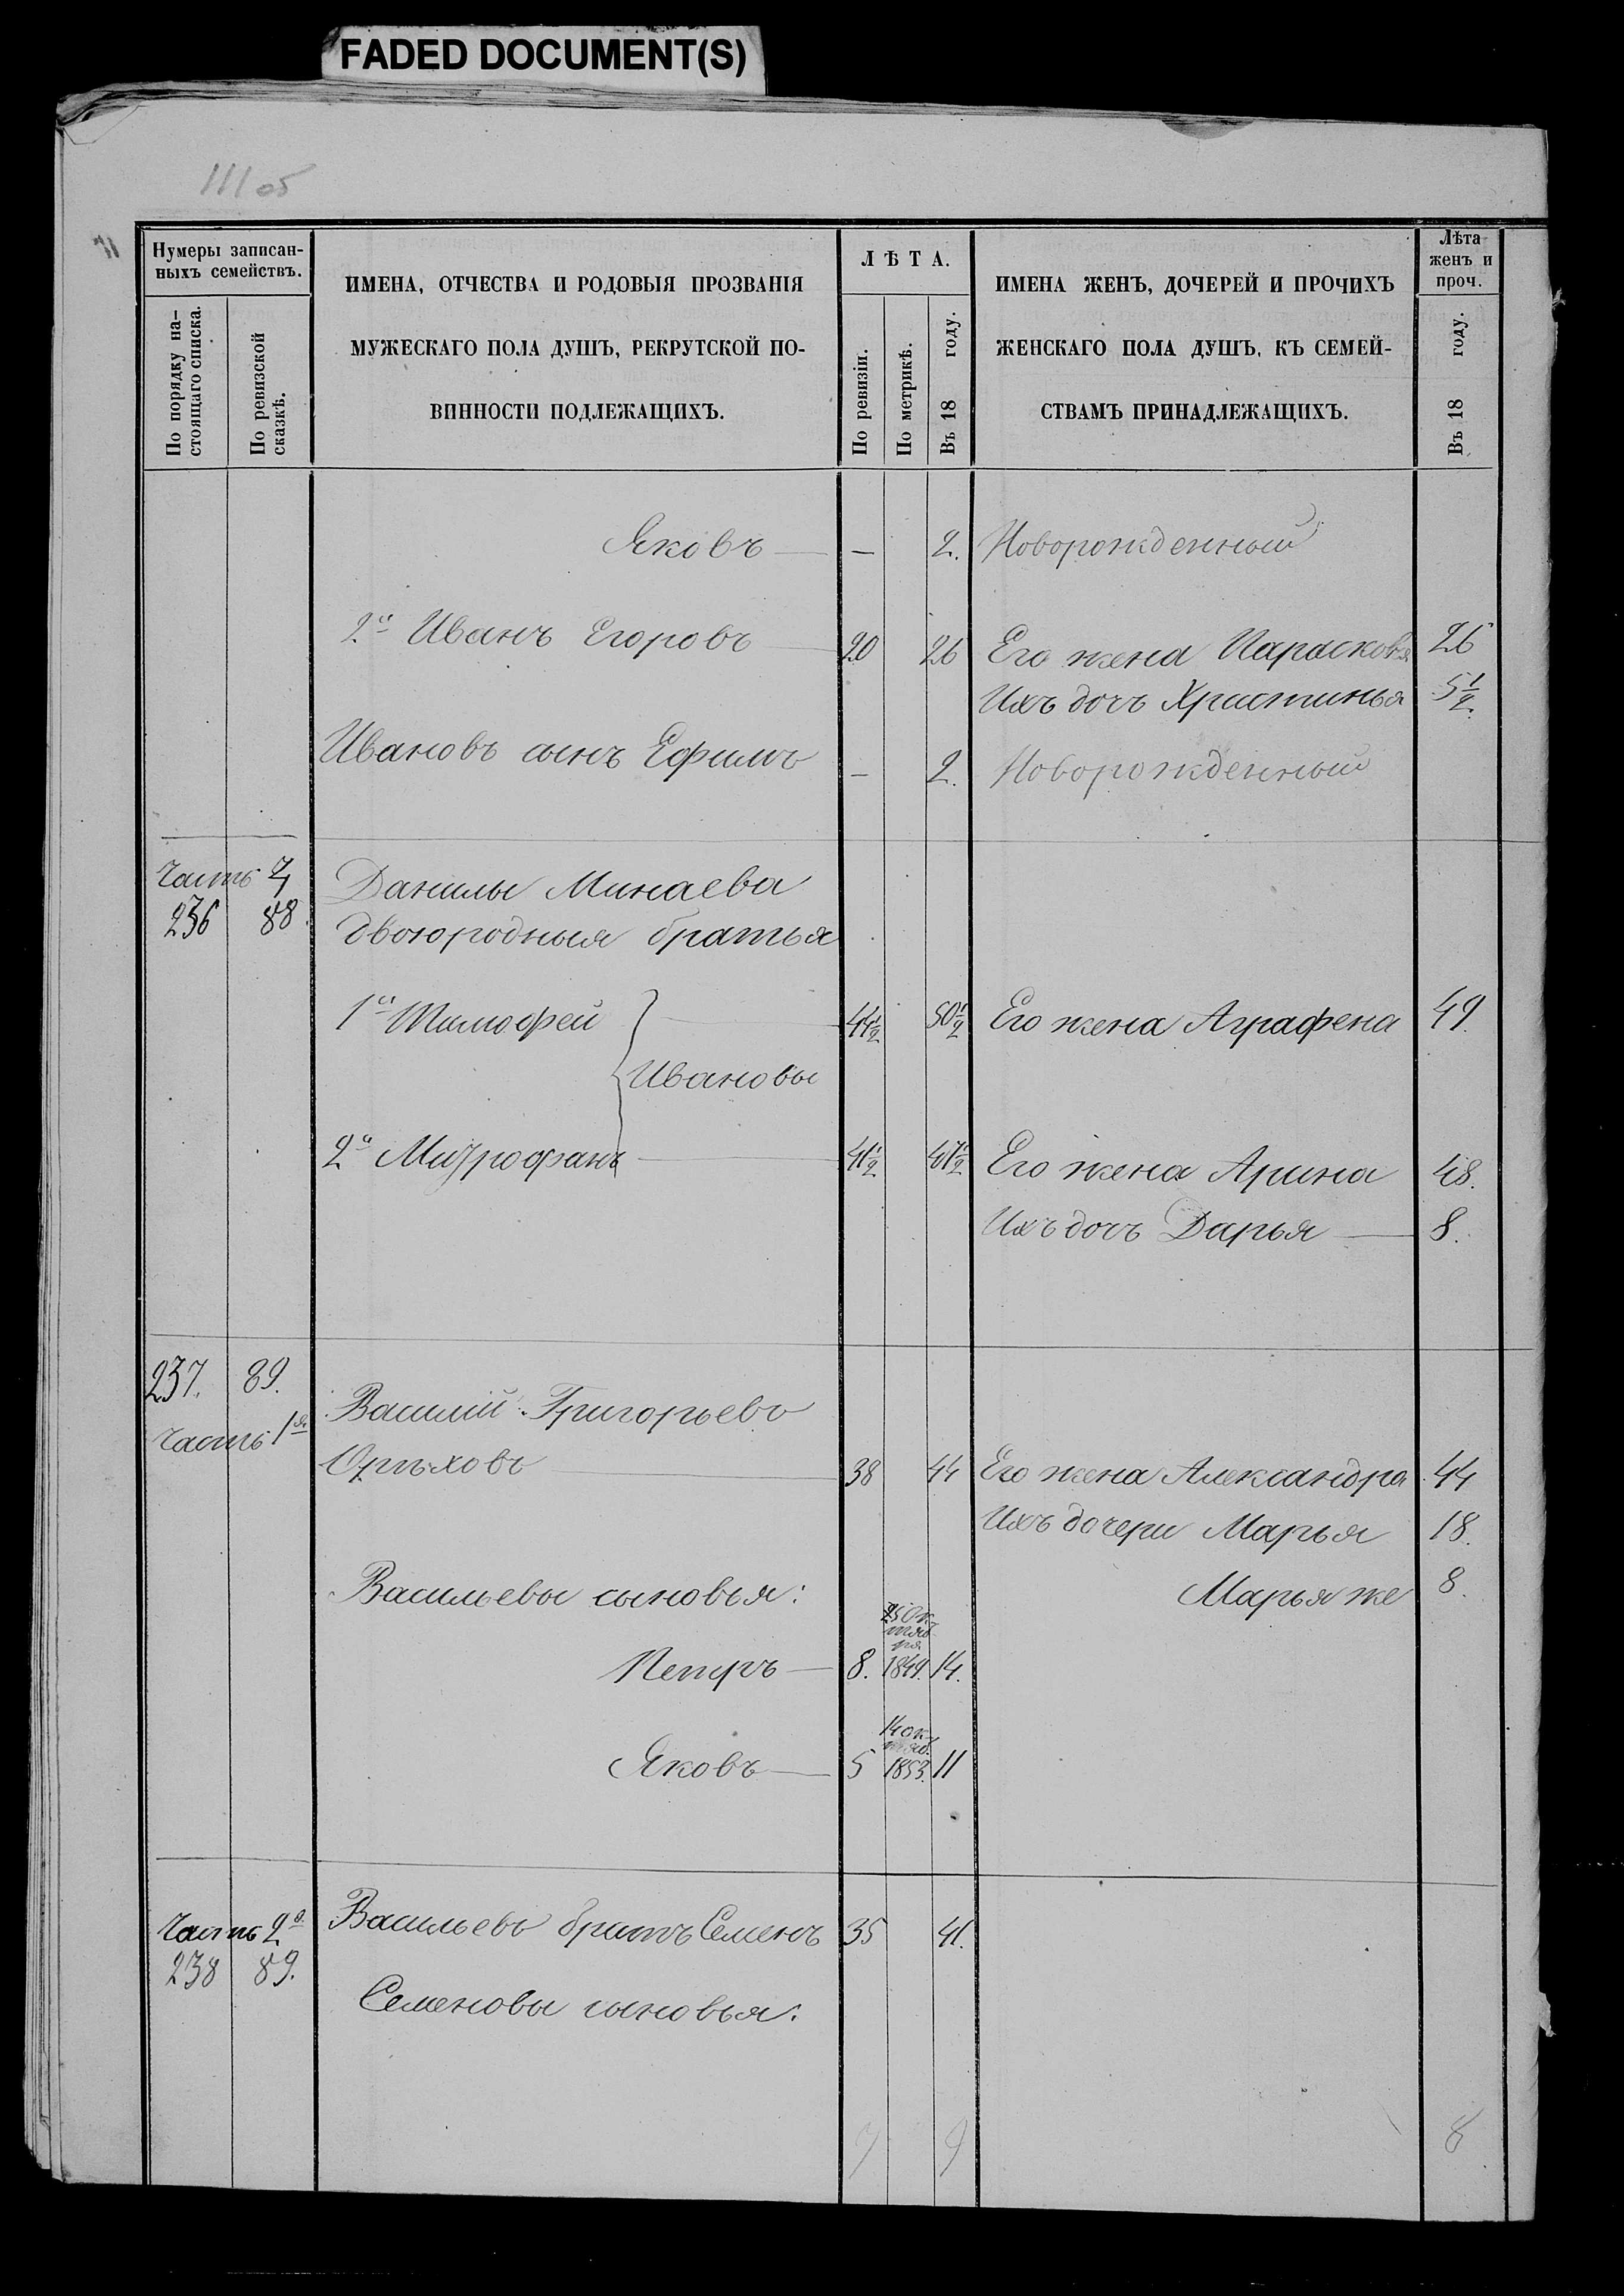 FADED DOCUMENT(S)
111 об
Нумеры записан-
ныхъ семействъ.
По порядку на-
стоящаго списка.
По ревизской
сказкѣ.
ИМЕНА, ОТЧЕСТВА И РОДОВЫЯ ПРОЗВАНІЯ
МУЖЕСКАГО ПОЛА ДУШЪ, РЕКРУТСКОЙ ПО-
ВИННОСТИ ПОДЛЕЖАЩИХЪ.
ЛѢТА.
По ревизіи.
По метрикѣ.
Въ 18 году.
ИМЕНА ЖЕНЪ, ДОЧЕРЕЙ И ПРОЧИХЪ
ЖЕНСКАГО ПОЛА ДУШЪ, КЪ СЕМЕЙ-
СТВАМЪ ПРИНАДЛЕЖАЩИХЪ.
Лѣта
женъ и
проч.
Въ 18 году.
Яковъ — 2. Новорожденный
2й Иванъ Егоровъ 20 26 Его жена Парасковья 26
Ихъ дочь Христинья 5½
Ивановъ сынъ Ефимъ — 2. Новорожденный
Часть
Данилы Минаева
236 88. двоюродныя братья
1й Тимофей 44½ 50½ Его жена Аграфена 49.
Ивановы
2й Митрофанъ 41½ 47½ Его жена Арина 48.
Ихъ дочь Дарья 8.
237. 89.
Василій Григорьевъ
Часть 1я
Орѣховъ 38 44 Его жена Александра 44
Ихъ дочери Марья 18.
Васильевы сыновья: Марья же 8.
25 Ок-
тяб-
ря
Петръ 8. 1849. 14.
14 Ок-
тяб.
Яковъ 5 1853. 11
Часть 2я Васильевъ братъ Семенъ 35 41.
238 89.
Семеновы сыновья:
7 9 8